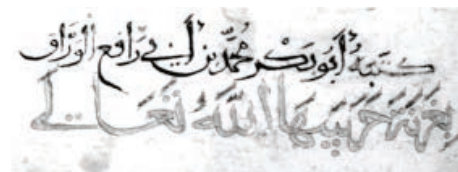 كتبه أبو بكر محمد بن أبي رافع الوراق
بغزنة حرسها الله تعالى